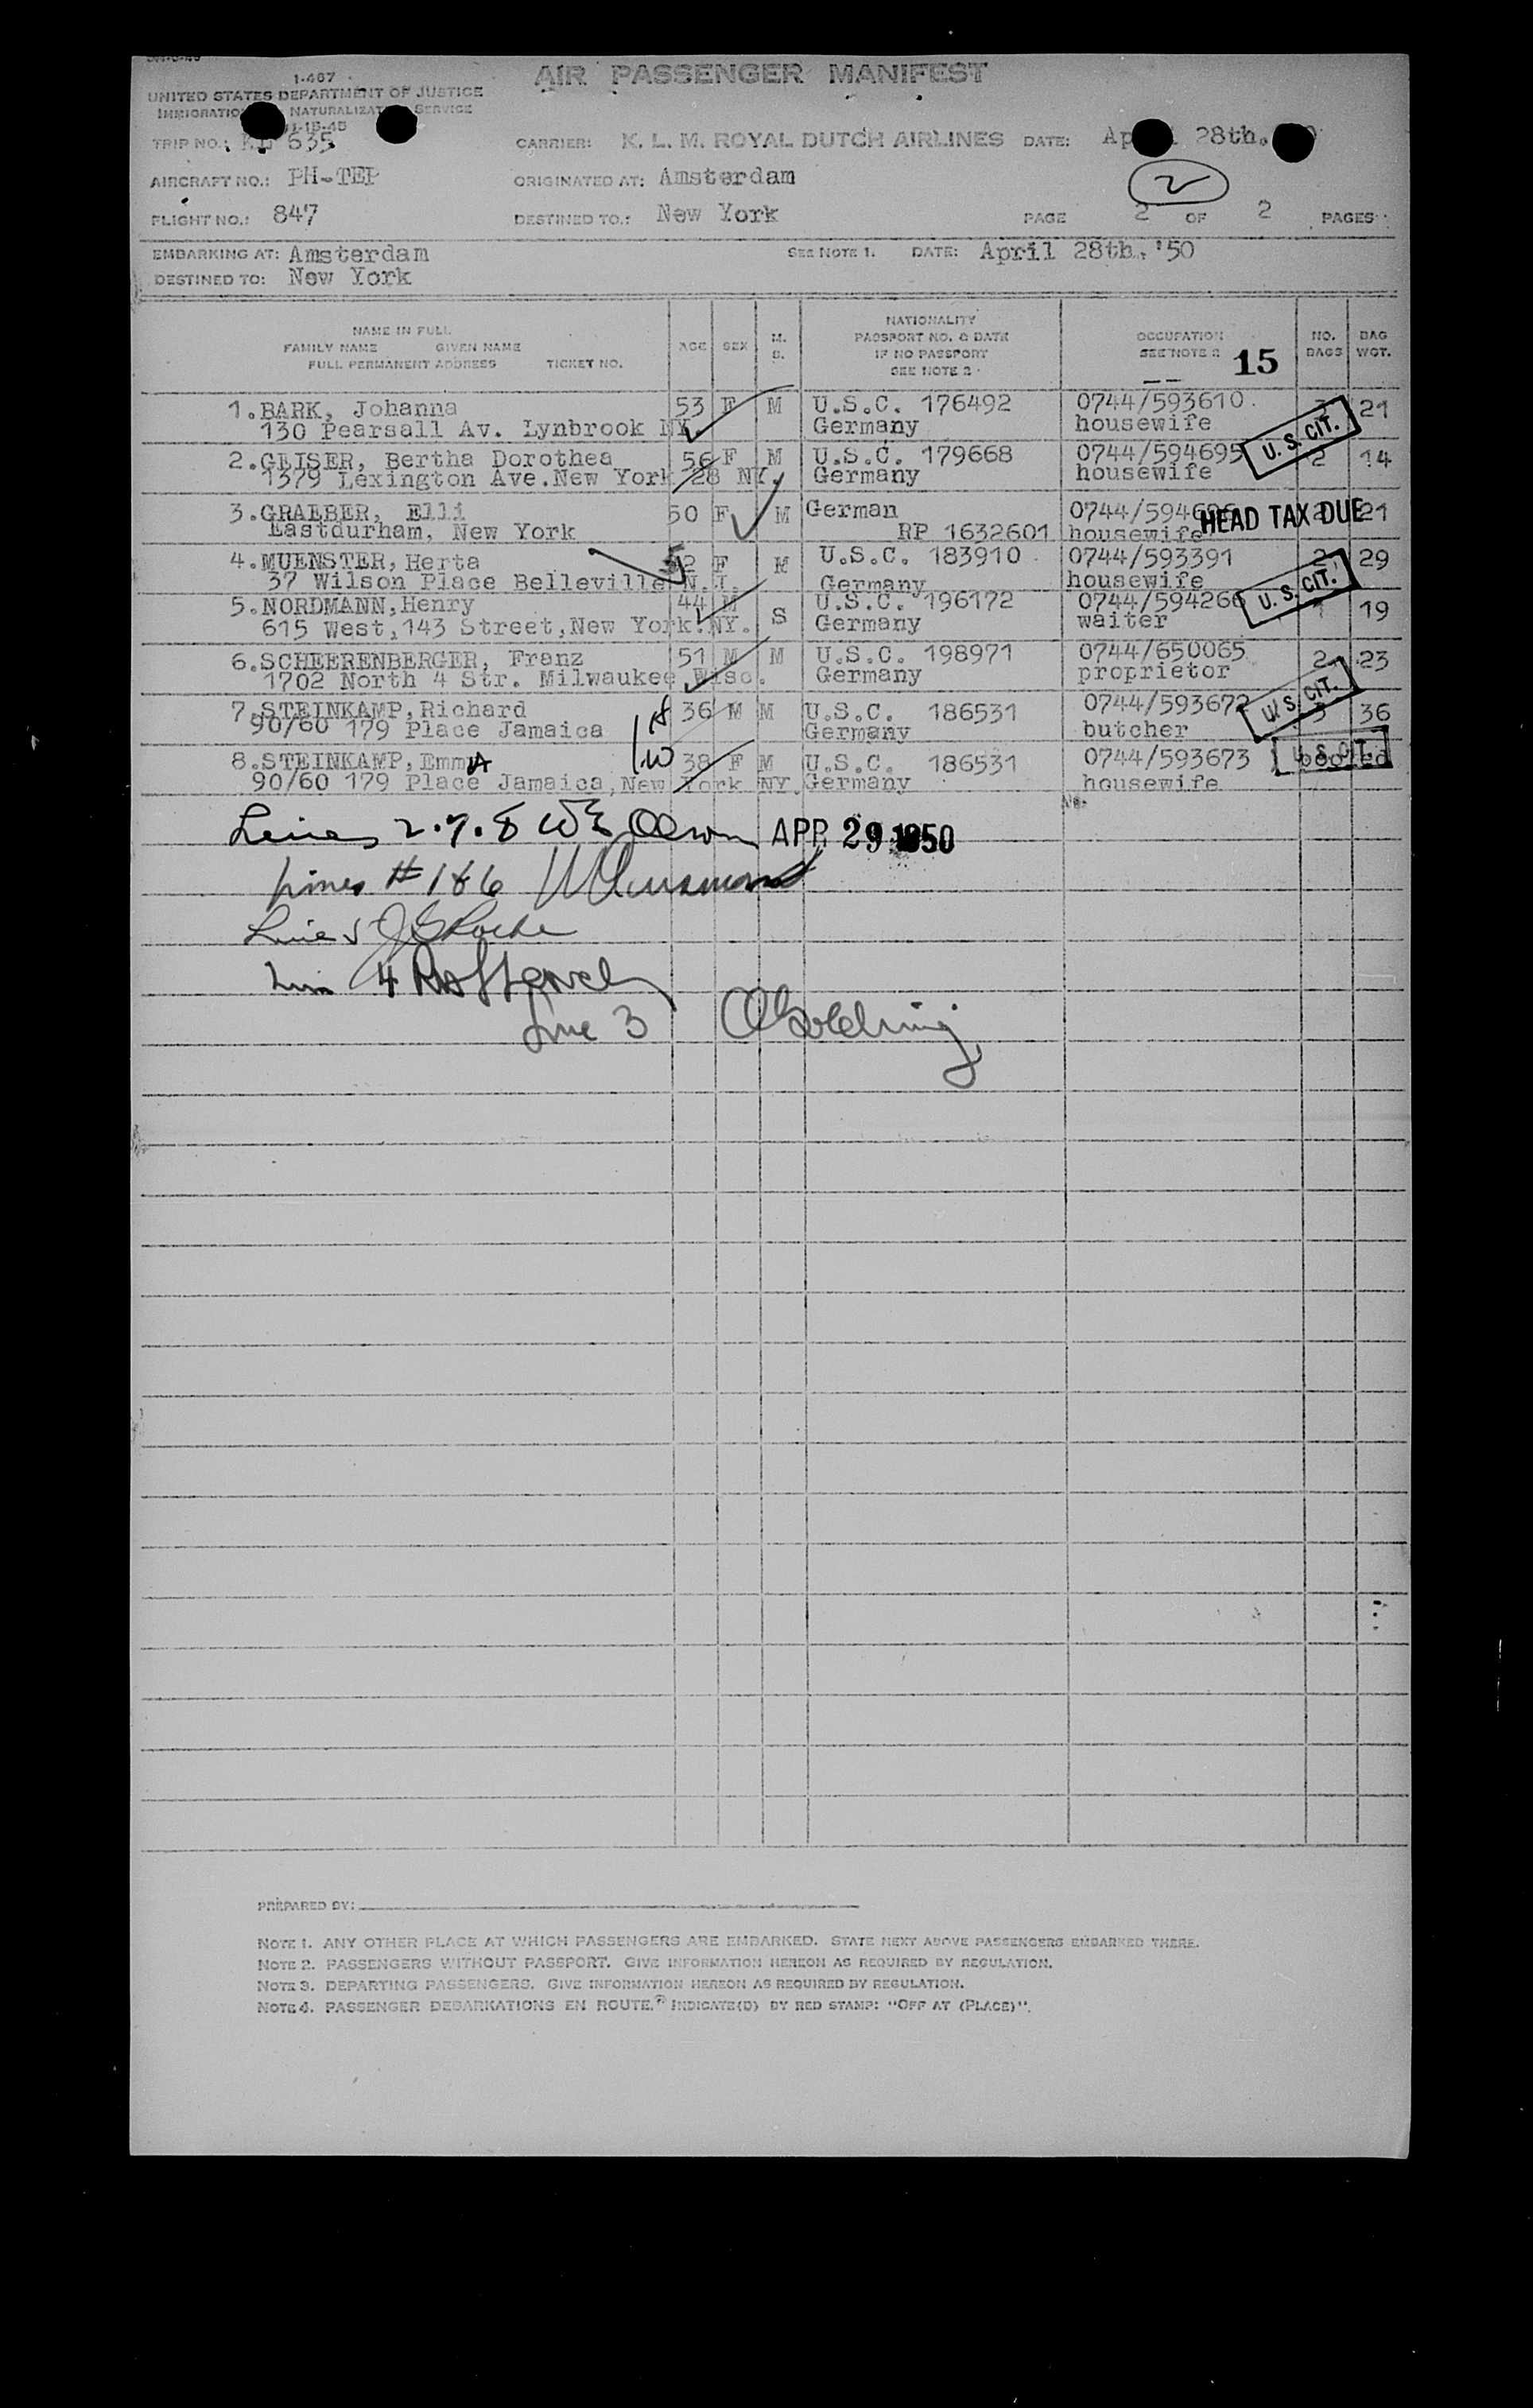 1-467
AIR PASSENGER MANIFEST
UNITED STATES DEPARTMENT OF JUSTICE
IMMIGRATIO NATURALIZAT SERVICE
TRIP NO.: 635 CARRIER: K. L. M. ROYAL DUTCH AIRLINES DATE: Ap 28th.
AIRCRAFT NO.: PH-TEP ORIGINATED AT: Amsterdam 2
FLIGHT NO.: 847 DESTINED TO.: New York PAGE 2 OF 2 PAGES
EMBARKING AT: Amsterdam SEE NOTE 1. DATE: April 28th.'50
DESTINED TO: New York
NAME IN FULL
FAMILY NAME GIVEN NAME
FULL PERMANENT ADDRESS TICKET NO.
AGE SEX M. S.
NATIONALITY
PASSPORT NO. & DATE
IF NO PASSPORT
SEE NOTE 2
OCCUPATION
SEE NOTE 2 15
NO. BAGS
BAG WGT.
1.BARK, Johanna 53 F M U.S.C. 176492 0744/593610 21
130 Pearsall Av. Lynbrook NY. Germany housewife U. S. CIT.
2.GLISER, Bertha Dorothea 56 F M U.S.C. 179668 0744/594695 2 14
1379 Lexington Ave.New York 28 NY. Germany housewife
3.GRAEBER, Elli 50 F M German HEAD TAX DUE 21
Eastdurham, New York RP 1632601 housewife
4.MUENSTER, Herta F M U.S.C. 183910 0744/593391 2 29
37 Wilson Place Belleville N.J. Germany housewife U. S. CIT.
5.NORDMANN,Henry 44 M S U.S.C. 196172 0744/594266 1 19
615 West,143 Street,New York.NY. Germany waiter
6.SCHEERENBERGER, Franz 51 M M U.S.C. 198971 0744/650065 2 23
1702 North 4 Str. Milwaukee Wisc. Germany proprietor U. S. CIT.
7.STEINKAMP,Richard 36 M M U.S.C. 186531 0744/593672 3 36
90/60 179 Place Jamaica Germany butcher
8.STEINKAMP,EmmA 38 F M U.S.C. 186531 0744/593673 pooled U. S. CIT.
90/60 179 Place Jamaica,New York NY. Germany housewife
Lines 2.7.8 WE Olson APR 29 1950
Lines # 1 & 6
Line 5 Roche
Line 4
Line 3 Goldring
PREPARED BY:
NOTE 1. ANY OTHER PLACE AT WHICH PASSENGERS ARE EMBARKED. STATE NEXT ABOVE PASSENGERS EMBARKED THERE.
NOTE 2. PASSENGERS WITHOUT PASSPORT. GIVE INFORMATION HEREON AS REQUIRED BY REGULATION.
NOTE 3. DEPARTING PASSENGERS. GIVE INFORMATION HEREON AS REQUIRED BY REGULATION.
NOTE 4. PASSENGER DEBARKATIONS EN ROUTE. INDICATE(D) BY RED STAMP: "OFF AT (PLACE)".